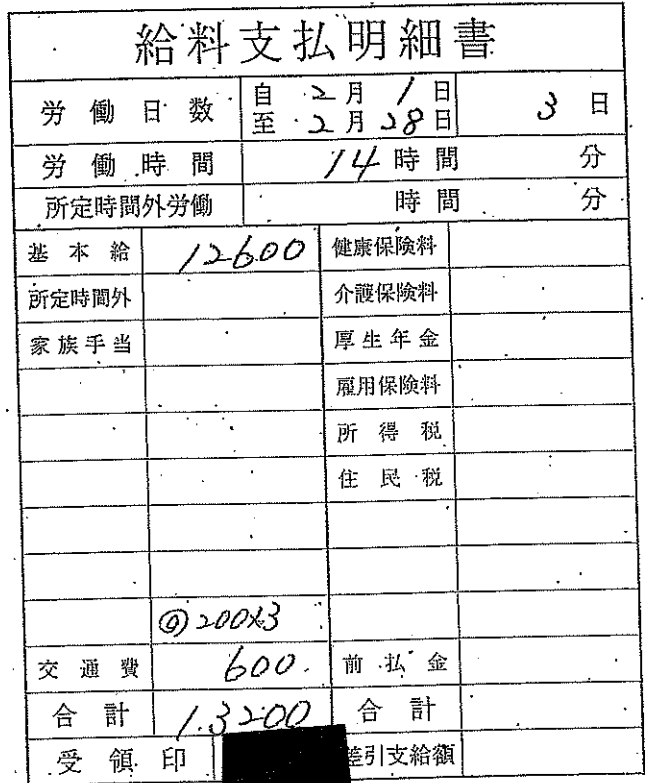 給料支払明細書
労働日数 自 2月1日 3日
至 2月28日
労働時間 14時間 分
所定時間外労働 時間 分
基本給 12600 健康保険料
所定時間外 介護保険料
家族手当 厚生年金
雇用保険料
所得税
住民税
@200×3
交通費 600. 前払金
合計 13200 合計
受領印 差引支給額